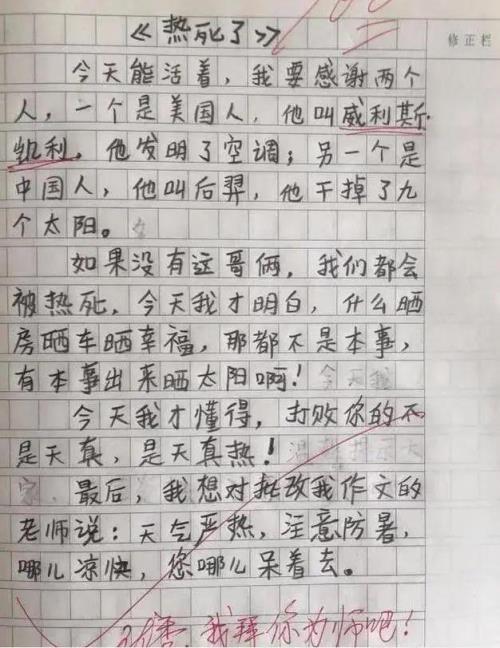 《热死了》
修正栏
今天能活着，我要感谢两个
人，一个是美国人，他叫威利斯·
凯利，他发明了空调；另一个是
中国人，他叫后羿，他干掉了九
个太阳。
如果没有这哥俩，我们都会
被热死，今天我才明白，什么晒
房晒车晒幸福，那都不是本事，
有本事出来晒太阳啊！今天我
今天我才懂得，打败你的不
是天真，是天真热！温馨提示大
家 最后，我想对批改我作文的
老师说：天气严热，注意防暑，
哪儿凉快，您哪儿呆着去。
我拜你为师吧！